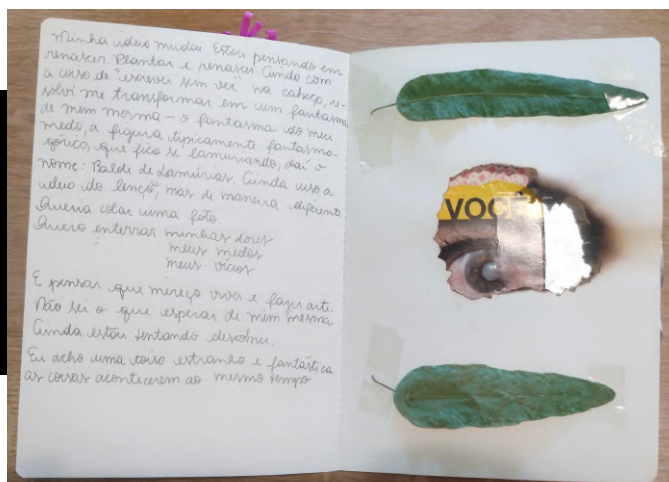 Minha ideia mudou. Estou pensando em
renascer. Plantar e renascer. Ainda com
a coisa de "escrever sem ver" na cabeça, re-
solvi me transformar em um fantasma
de mim mesma — o fantasma do meu
medo, a figura tipicamente fantasma-
górica, que fica se lamuriando, daí o
nome: Balde de Lamúrias. Ainda uso a
ideia do lenço, mas de maneira diferente.
Queria colar uma foto.
Quero enterrar minhas dores
meus medos
meus vícios
E pensar que mereço viver e fazer arte.
Não sei o que esperar de mim mesma
Ainda estou tentando descobrir.
Eu acho uma coisa estranha e fantástica
as coisas acontecerem ao mesmo tempo
VOCÊ